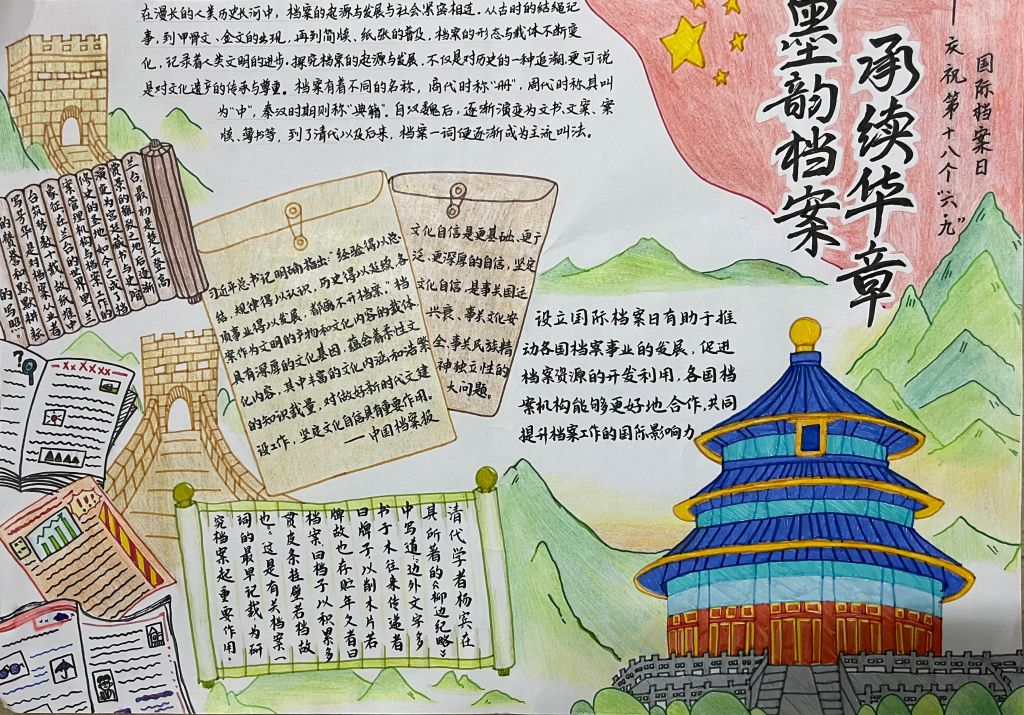 在漫长的人类历史长河中，档案的起源与发展与社会紧密相连。从古时的结绳记
事，到甲骨文、金文的出现，再到简牍、纸张的普及，档案的形态与载体不断变
化，记录着人类文明的进步。探究档案的起源与发展，不仅是对历史的一种追溯，更可说
是对文化遗产的传承与尊重。档案有着不同的名称，商代时称“册”，周代时称其叫
为“中”，秦汉时期则称“典籍”。自汉魏后，逐渐演变为文书、文案、案
牍、簿书等，到了清代以及后来，档案一词便逐渐成为主流叫法。
墨韵档案
承续华章
——庆祝第十八个“六·九”
国际档案日
兰台，最初是楚王登高
赏景的雅致之地后逐渐
演变为宫廷藏书与史馆
修史的圣地如今已成了档
案管理机构与档案工作的
象征在兰台的世界里兰
台筑梦数十载故纸堆中
写芳华是对档案从业者
的赞誉和默默耕耘
的写照。
习近平总书记明确指出：“经验得以总
结，规律得以认识，历史得以延续，各
项事业得以发展，都离不开档案。”档
案作为文明的产物和文化内容的载体
具有深厚的文化基因，蕴含着柔性文
化内容，其中丰富的文化内涵和浩繁
的知识载量，对做好新时代文建
设工作，坚定文化自信具有重要作用。
——中国档案报
文化自信是更基础、更广
泛、更深厚的自信，坚定
文化自信，是事关国运
兴衰、事关文化安
全、事关民族精
神独立性的
大问题。
设立国际档案日有助于推
动各国档案事业的发展，促进
档案资源的开发利用，各国档
案机构能够更好地合作，共同
提升档案工作的国际影响力
清代学者杨宾在
其所著的《柳边纪略》
中写道：“边外文字多
书于木往来传递者
曰牌子以削木片若
牌故也存贮年久者曰
档案曰档子以积累多
贯皮条挂壁若档故
也”。这是有关档案一
词的最早记载为研
究档案起重要作用。
XxXxxx